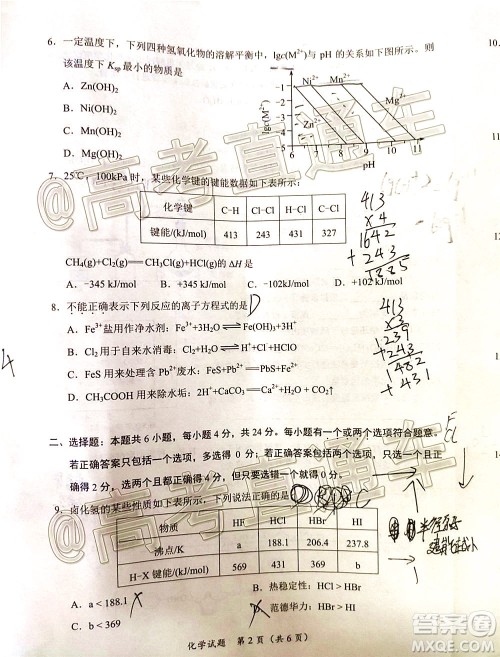 6. 一定温度下，下列四种氢氧化物的溶解平衡中，lgc(M²⁺)与 pH 的关系如下图所示。则
该温度下 Ksp 最小的物质是
A. Zn(OH)₂
B. Ni(OH)₂
C. Mn(OH)₂
D. Mg(OH)₂
lgc(M²⁺)
Ni²⁺ Mn²⁺
Mg²⁺
Zn²⁺
6 7 8 9 10 11
pH
7. 25℃，100kPa 时，某些化学键的键能数据如下表所示：
化学键 C−H Cl−Cl H−Cl C−Cl
键能/(kJ/mol) 413 243 431 327
CH₄(g)+Cl₂(g)══CH₃Cl(g)+HCl(g)的 ΔH 是
A. −345 kJ/mol B. +345 kJ/mol C. −102kJ/mol D. +102 kJ/mol
8. 不能正确表示下列反应的离子方程式的是 D
A. Fe³⁺盐用作净水剂：Fe³⁺+3H₂O⇌Fe(OH)₃+H⁺
B. Cl₂ 用于自来水消毒：Cl₂+H₂O⇌H⁺+Cl⁻+HClO
C. FeS 用来处理含 Pb²⁺废水：FeS+Pb²⁺══PbS+Fe²⁺
D. CH₃COOH 用来除水垢：2H⁺+CaCO₃══Ca²⁺+H₂O+CO₂↑
413
x 4
1642
+ 243
1885
413
x3
1239
+243
1482
+431
4
二、选择题：本题共 6 小题，每小题 4 分，共 24 分。每小题有一个或两个选项符合题意。
若正确答案只包括一个选项，多选得 0 分；若正确答案包括两个选项，选一个且正
确得 2 分，选两个且都正确得 4 分，但只要选错一个就得 0 分。
F
Cl
9. 卤化氢的某些性质如下表所示，下列说法正确的是 C
物质 HF HCl HBr HI
沸点/K a 188.1 206.4 237.8
H−X 键能/(kJ/mol) 569 431 b 297
A. a < 188.1 B. 热稳定性：HCl > HBr
C. b < 369 范德华力：HBr > HI
化学试题 第 2 页（共 6 页）
@高考直通车
@高考直通车
作业帮
MXQE.COM
10.